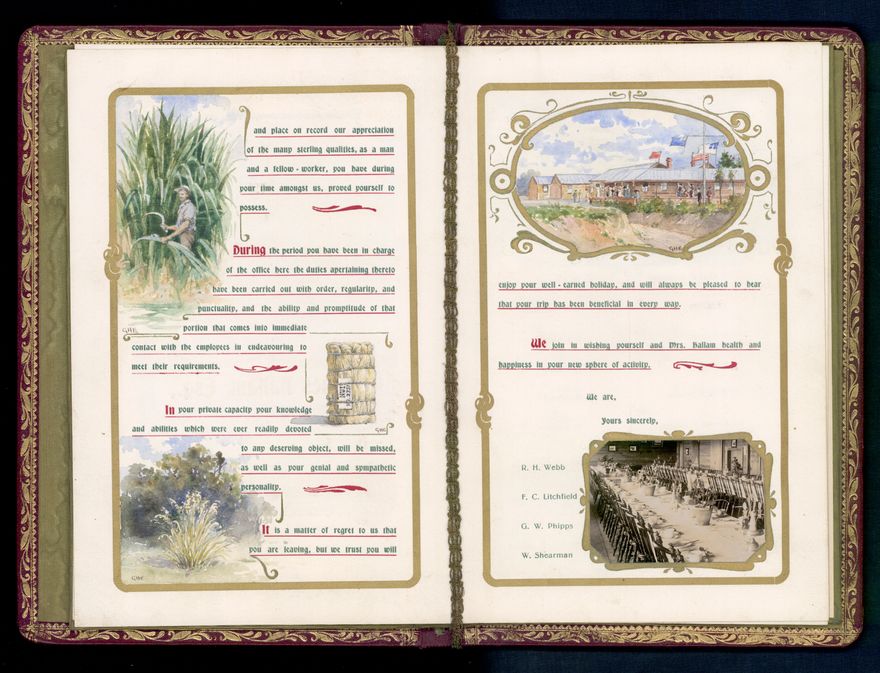 and place on record our appreciation
of the many sterling qualities, as a man
and a fellow-worker, you have during
your time amongst us, proved yourself to
possess.
During the period you have been in charge
of the office here the duties apertaining thereto
have been carried out with order, regularity, and
punctuality, and the ability and promptitude of that
portion that comes into immediate
contact with the employees in endeavouring to
meet their requirements.
In your private capacity your knowledge
and abilities which were ever readily devoted
to any deserving object, will be missed,
as well as your genial and sympathetic
personality.
It is a matter of regret to us that
you are leaving, but we trust you will
GHE
GHE
GHE
GHE
enjoy your well-earned holiday, and will always be pleased to hear
that your trip has been beneficial in every way.
We join in wishing yourself and Mrs. Hallam health and
happiness in your new sphere of activity.
We are,
Yours sincerely,
R. H. Webb
F. C. Litchfield
G. W. Phipps
W. Shearman